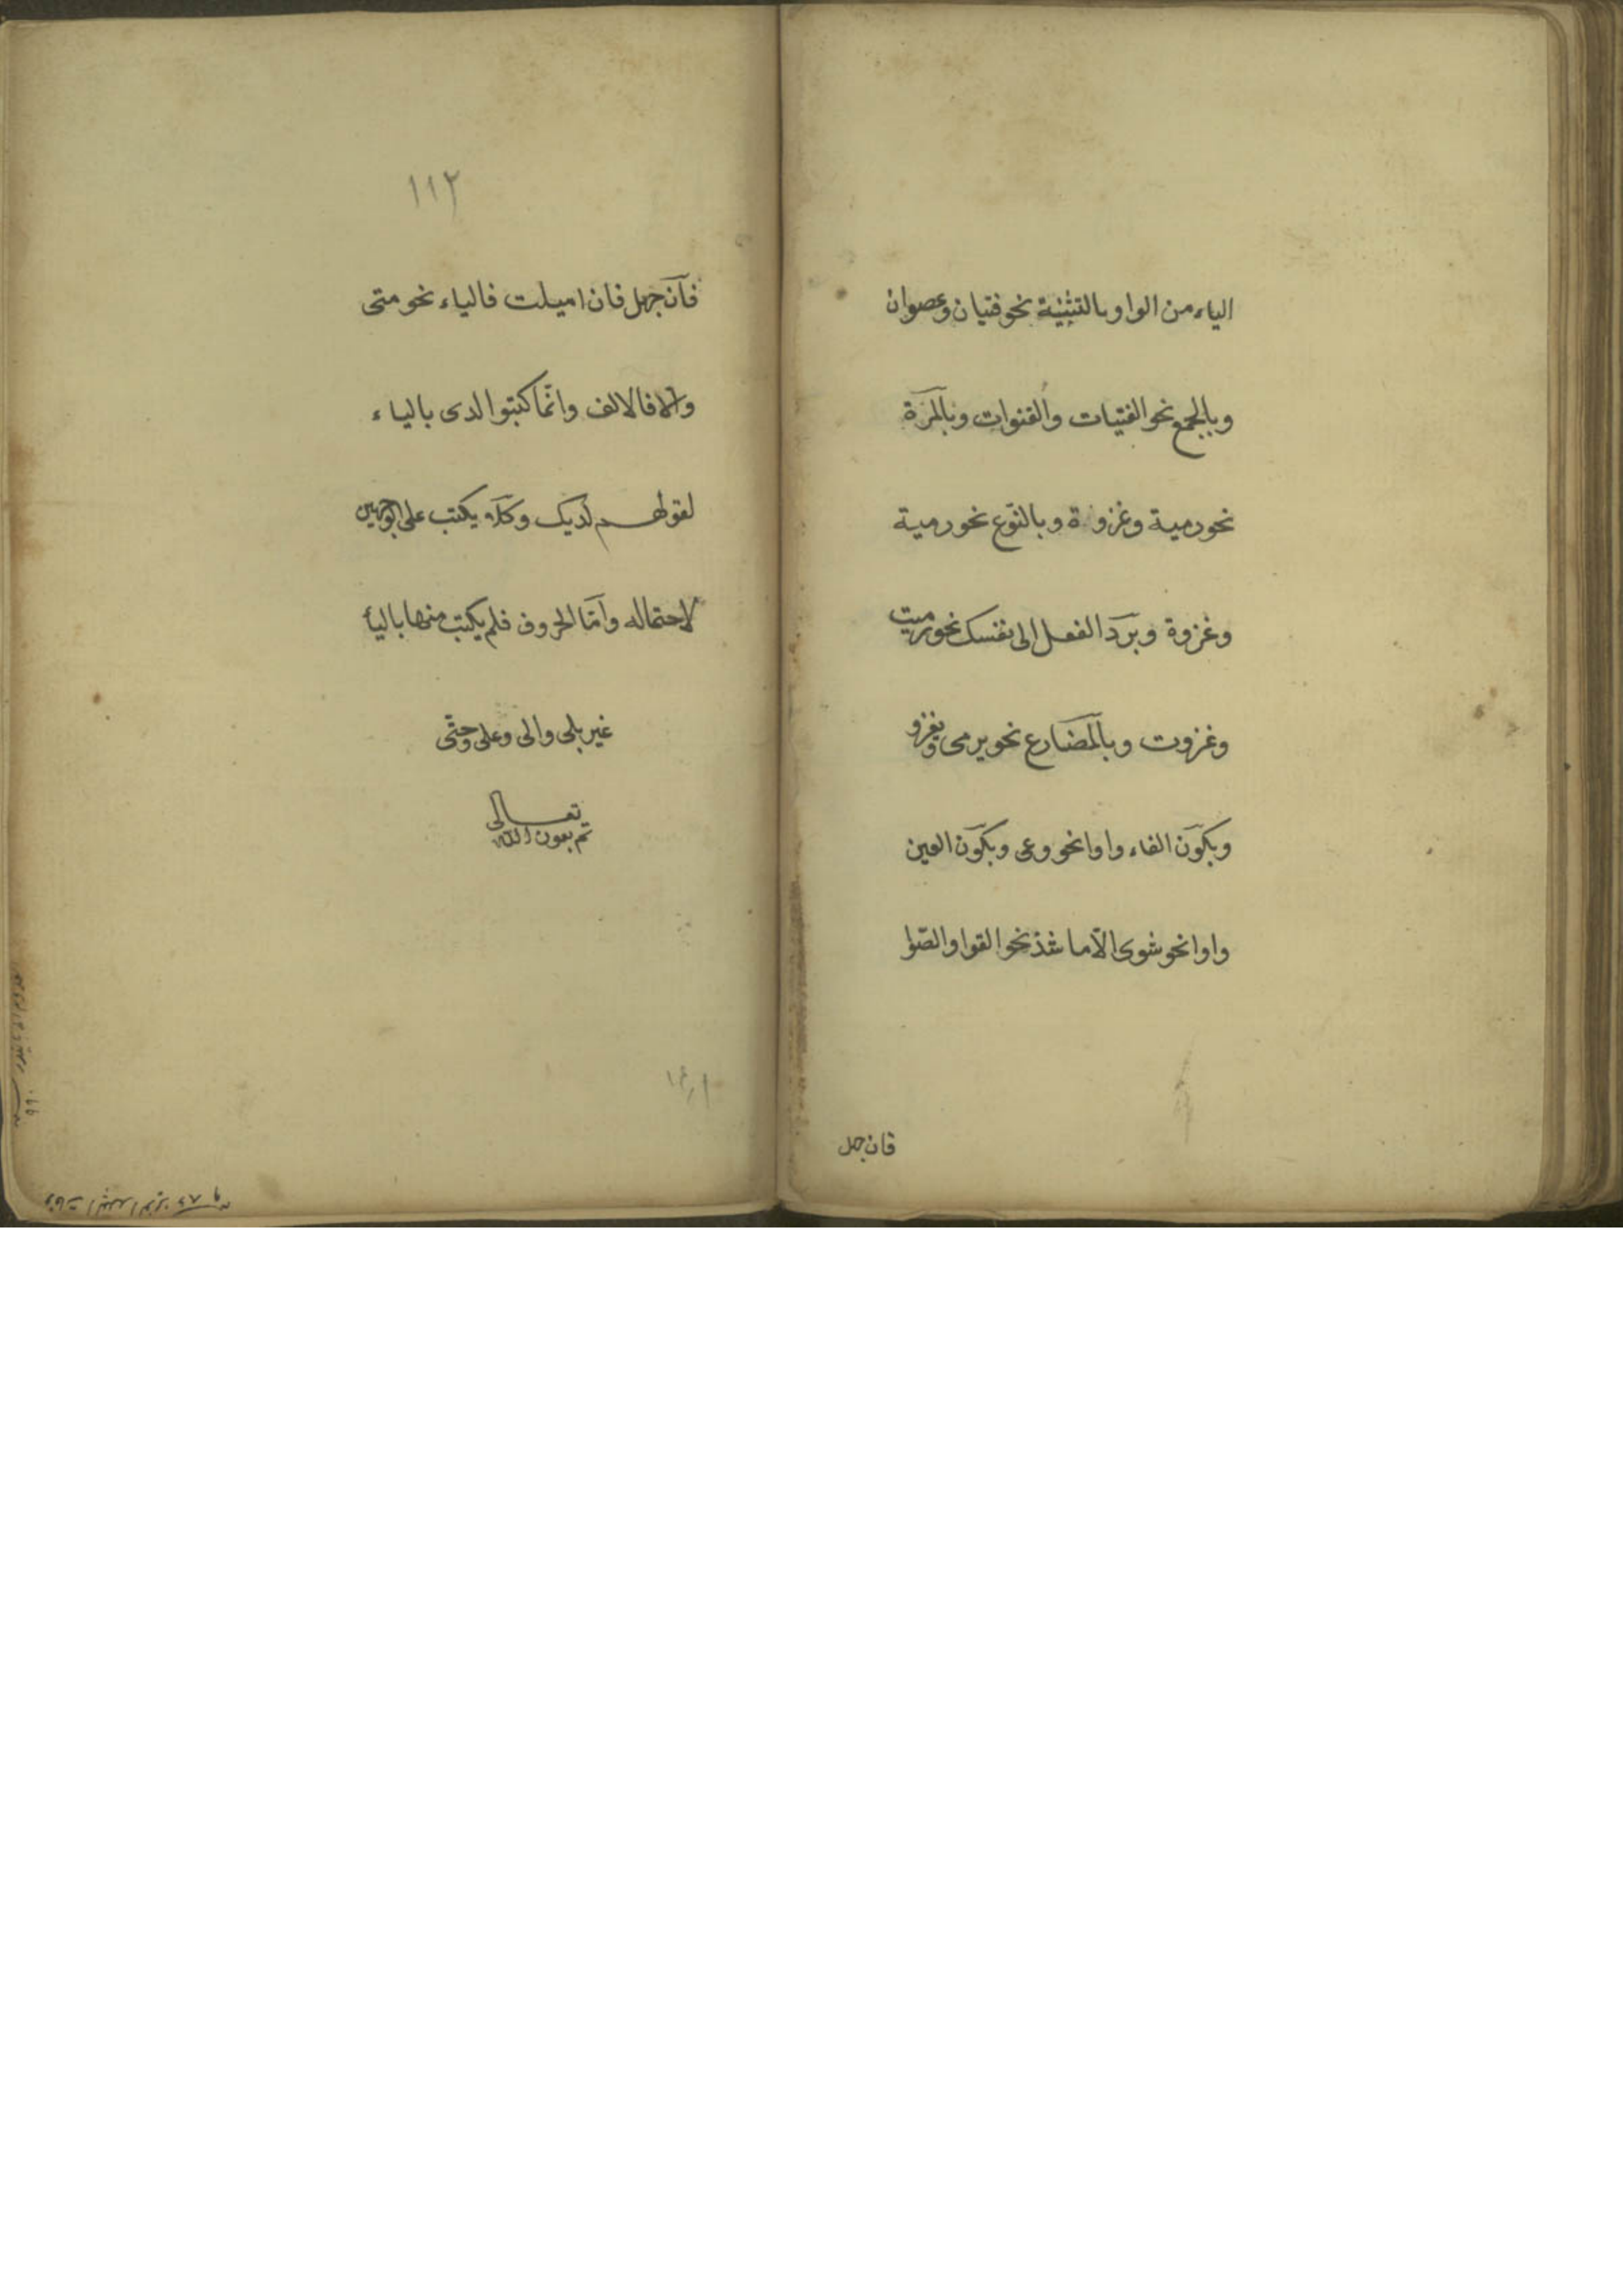 الياء من الواو بالتثنية نحو فتيان وعصوان
وبالجمع نحو الفتيات والقنوات وبالمرّة
نحو رمية وغزوة وبالنّوع نحو رمية
وغزوة وبردّ الفعل الى نفسك نحو رميت
وغزوت وبالمضارع نحو يرمى ويغزو
وبكون الفاء واوا نحو وعى وبكون العين
واوا نحو شوى الّا ما شذ نحو القوا والصّوا
فان جهل
١١٢
فان جهل فان اميلت فالياء نحو متى
والا فالالف وانّما كتبوا لدى بالياء
لقولهم لديك وكلا يكتب على الوجهين
لاحتماله وامّا الحروف فلم يكتب منها بالياء
غير بلى والى وعلى وحتّى
تم بعون الله تعالى